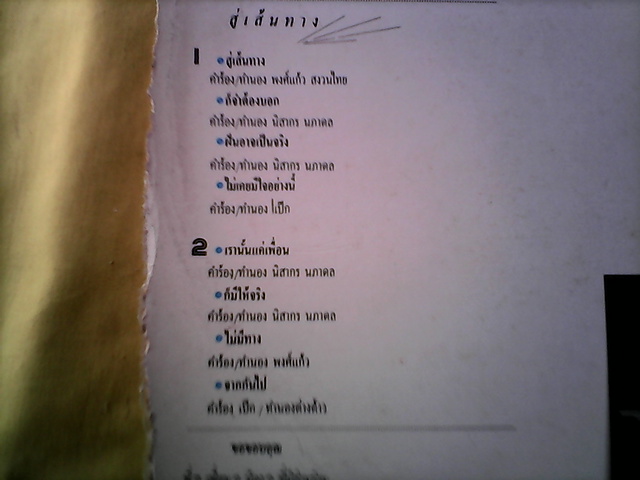 สู่เส้นทาง
1 •สู่เส้นทาง
คำร้อง/ทำนอง พงศ์แก้ว สงวนไทย
•ก็จำต้องบอก
คำร้อง/ทำนอง นิสากร นภาดล
•ฝันอาจเป็นจริง
คำร้อง/ทำนอง นิสากร นภาดล
•ไม่เคยมีใจอย่างนี้
คำร้อง/ทำนอง เป๊ก
2 •เรานั้นแค่เพื่อน
คำร้อง/ทำนอง นิสากร นภาดล
•ก็มีให้จริง
คำร้อง/ทำนอง นิสากร นภาดล
•ไม่มีทาง
คำร้อง/ทำนอง พงศ์แก้ว
•จากกันไป
คำร้อง เป๊ก / ทำนองต่างด้าว
ขอขอบคุณ